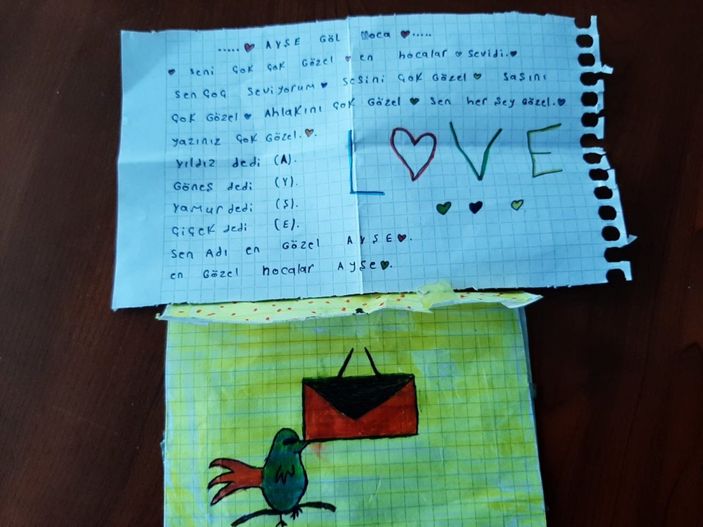 ..... AYSE GÖL Hoca .....
seni çok çok Gözel en hocalar sevidi.
sen çog seviyorum sesini çok Gözel Saşını
çok Gözel Ahlakını çok Gözel sen her şey Gözel.
yazınız çok Gözel.
LOVE
yıldız dedi (A).
Göneş dedi (Y).
yamur dedi (Ş).
çiçek dedi (E).
sen Adı en Gözel AYŞE.
en Gözel hocalar AYŞE.